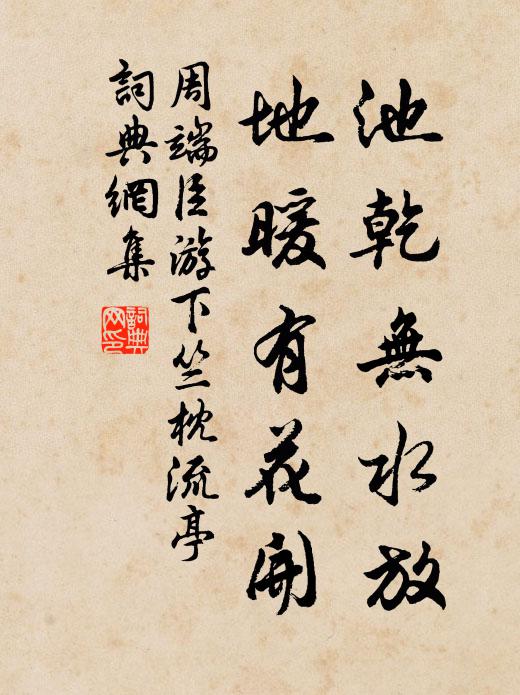 池乾無水放
地暖有花開
周端臣游下竺枕流亭
詞典網集
詞典
网印